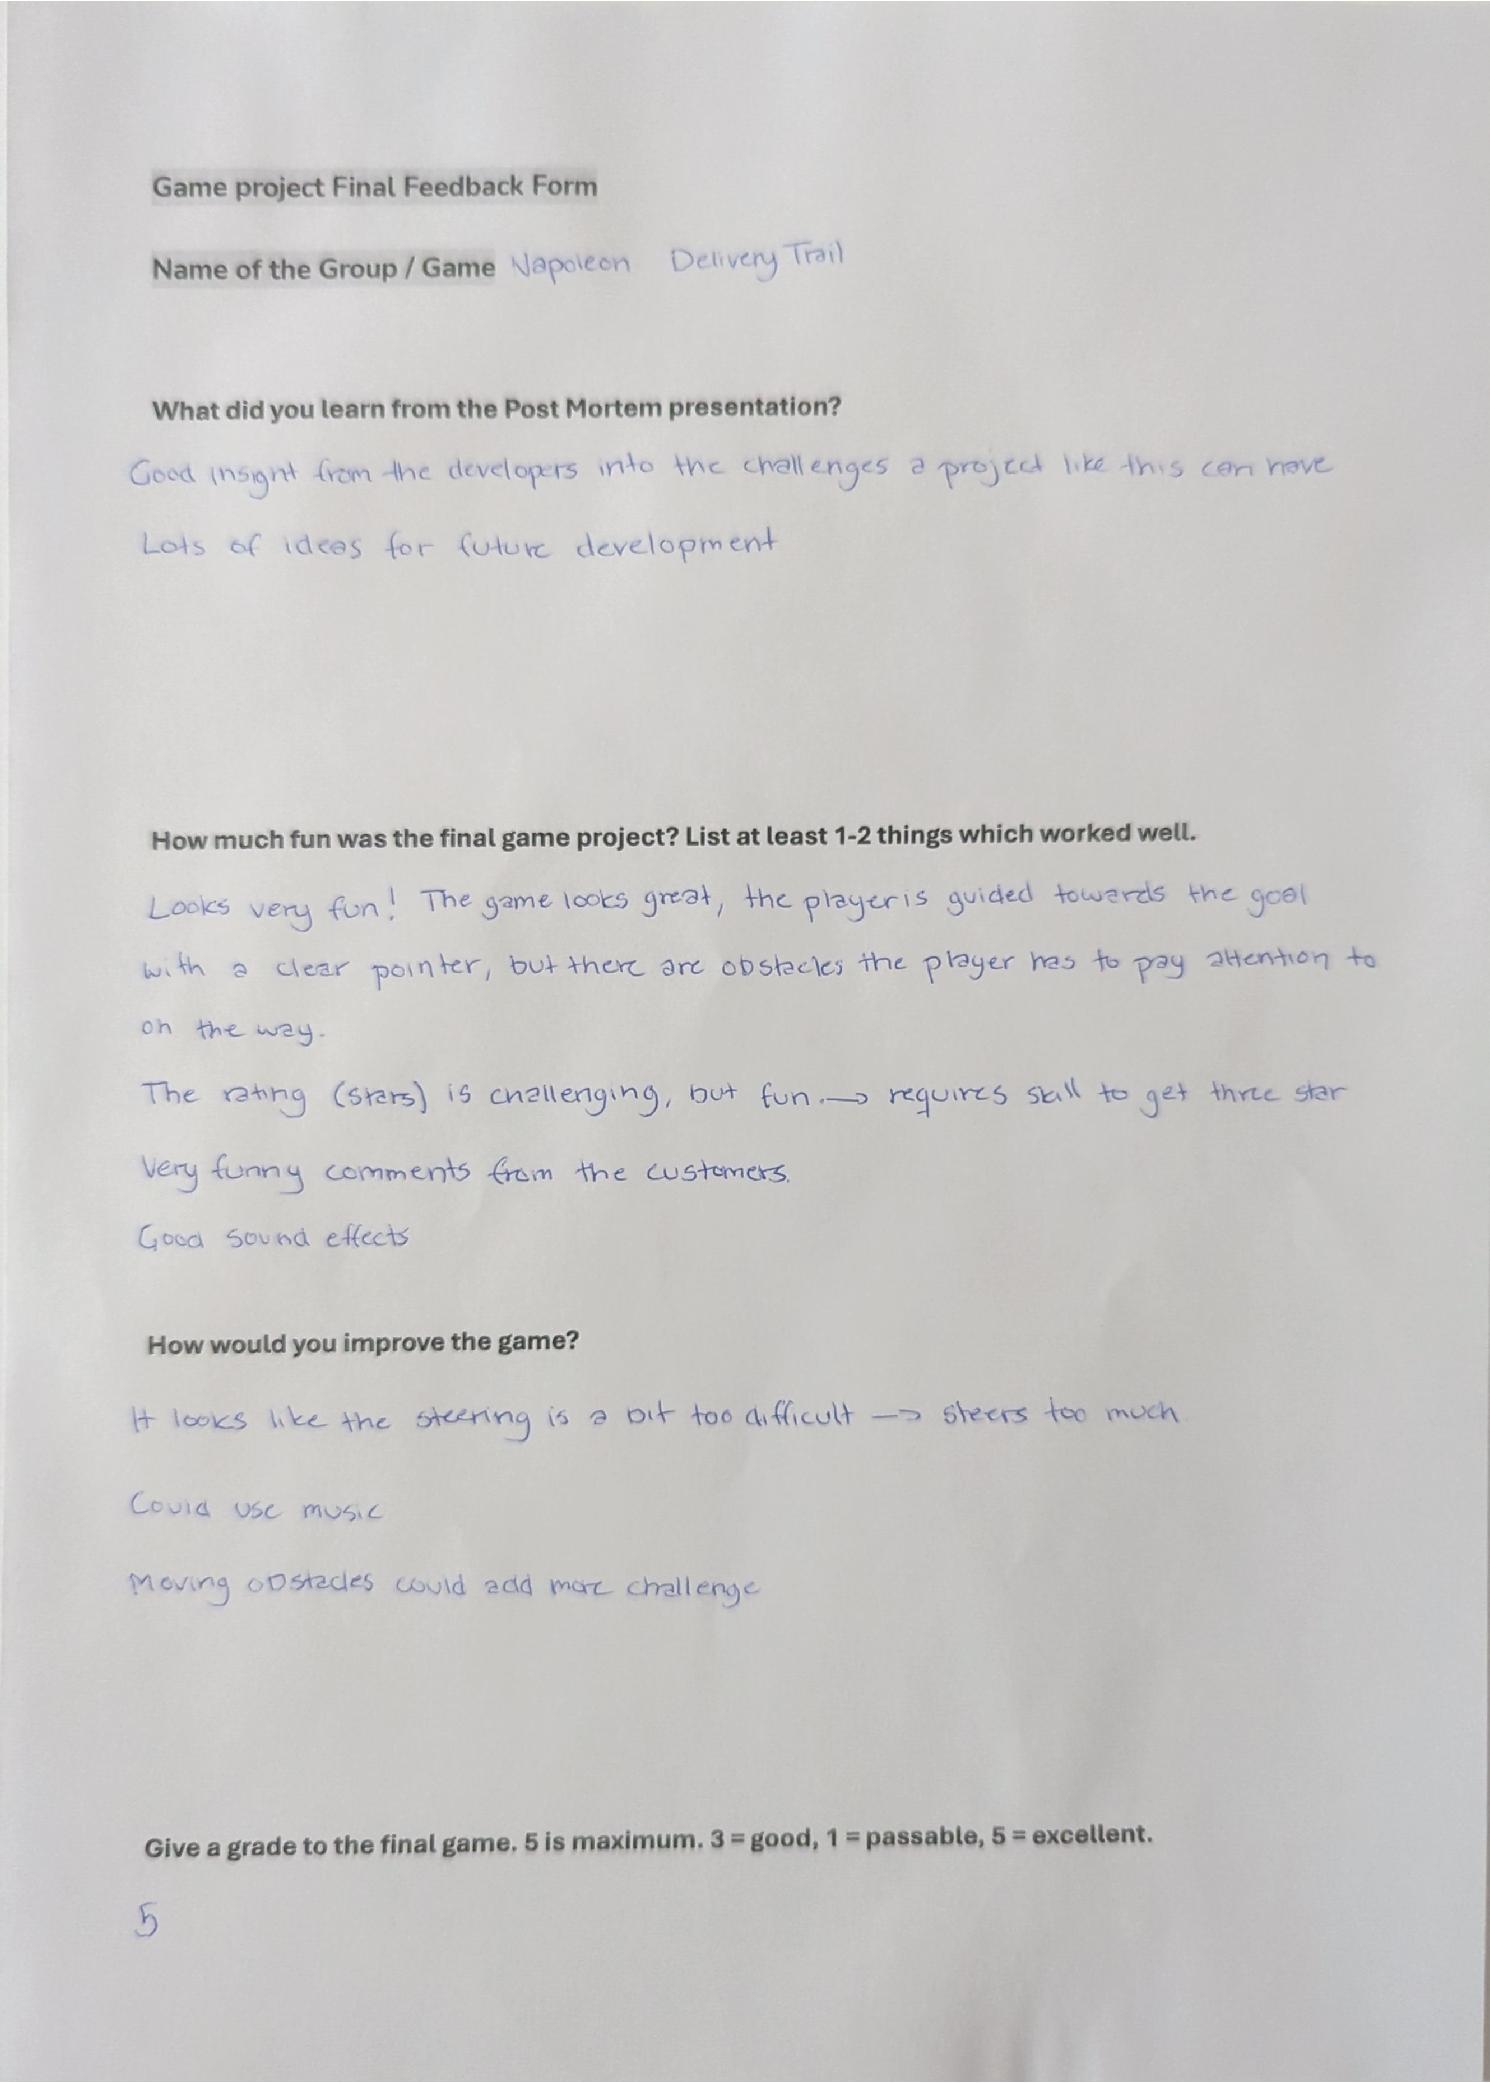 Game project Final Feedback Form
Name of the Group / Game Napoleon Delivery Trail
What did you learn from the Post Mortem presentation?
Good insight from the developers into the challenges a project like this can have
Lots of ideas for future development
How much fun was the final game project? List at least 1-2 things which worked well.
Looks very fun! The game looks great, the player is guided towards the goal
with a clear pointer, but there are obstacles the player has to pay attention to
on the way.
The rating (stars) is challenging, but fun. → requires skill to get three star
Very funny comments from the customers.
Good sound effects
How would you improve the game?
It looks like the steering is a bit too difficult → steers too much
Could use music
Moving obstacles could add more challenge
Give a grade to the final game. 5 is maximum. 3 = good, 1 = passable, 5 = excellent.
5